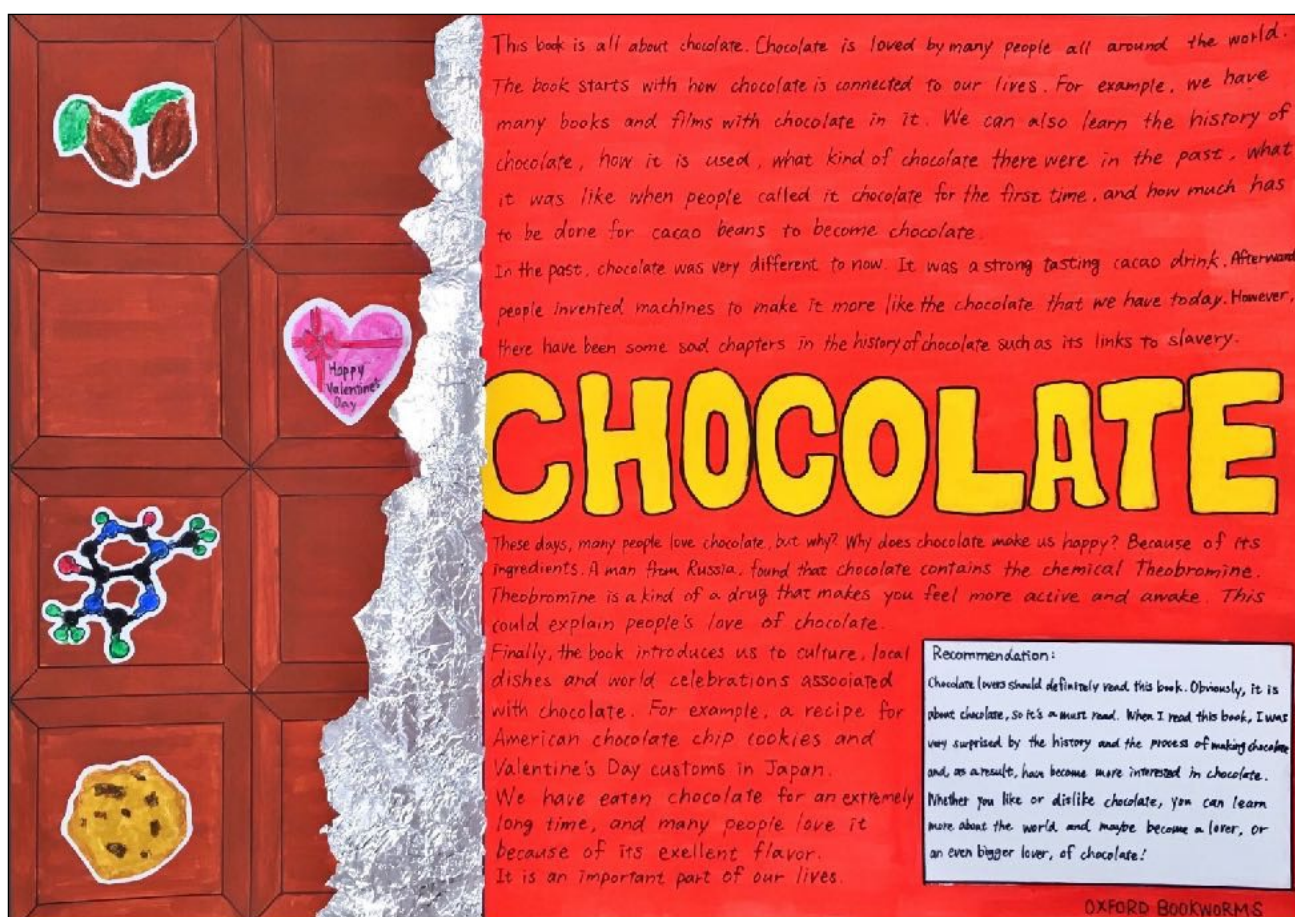 This book is all about chocolate. Chocolate is loved by many people all around the world.
The book starts with how chocolate is connected to our lives. For example, we have
many books and films with chocolate in it. We can also learn the history of
chocolate, how it is used, what kind of chocolate there were in the past, what
it was like when people called it chocolate for the first time, and how much has
to be done for cacao beans to become chocolate.
In the past, chocolate was very different to now. It was a strong tasting cacao drink. Afterward
people invented machines to make it more like the chocolate that we have today. However,
there have been some sad chapters in the history of chocolate such as its links to slavery.
Happy
Valentine's
Day
CHOCOLATE
These days, many people love chocolate, but why? Why does chocolate make us happy? Because of its
ingredients. A man from Russia, found that chocolate contains the chemical Theobromine.
Theobromine is a kind of a drug that makes you feel more active and awake. This
could explain people's love of chocolate.
Finally, the book introduces us to culture, local
dishes and world celebrations associated
with chocolate. For example, a recipe for
American chocolate chip cookies and
Valentine's Day customs in Japan.
We have eaten chocolate for an extremely
long time, and many people love it
because of its exellent flavor.
It is an important part of our lives.
Recommendation:
Chocolate lovers should definitely read this book. Obviously, it is
about chocolate, so it's a must read. When I read this book, I was
very surprised by the history and the process of making chocolate
and, as a result, have become more interested in chocolate.
Whether you like or dislike chocolate, you can learn
more about the world and maybe become a lover, or
an even bigger lover, of chocolate!
OXFORD BOOKWORMS